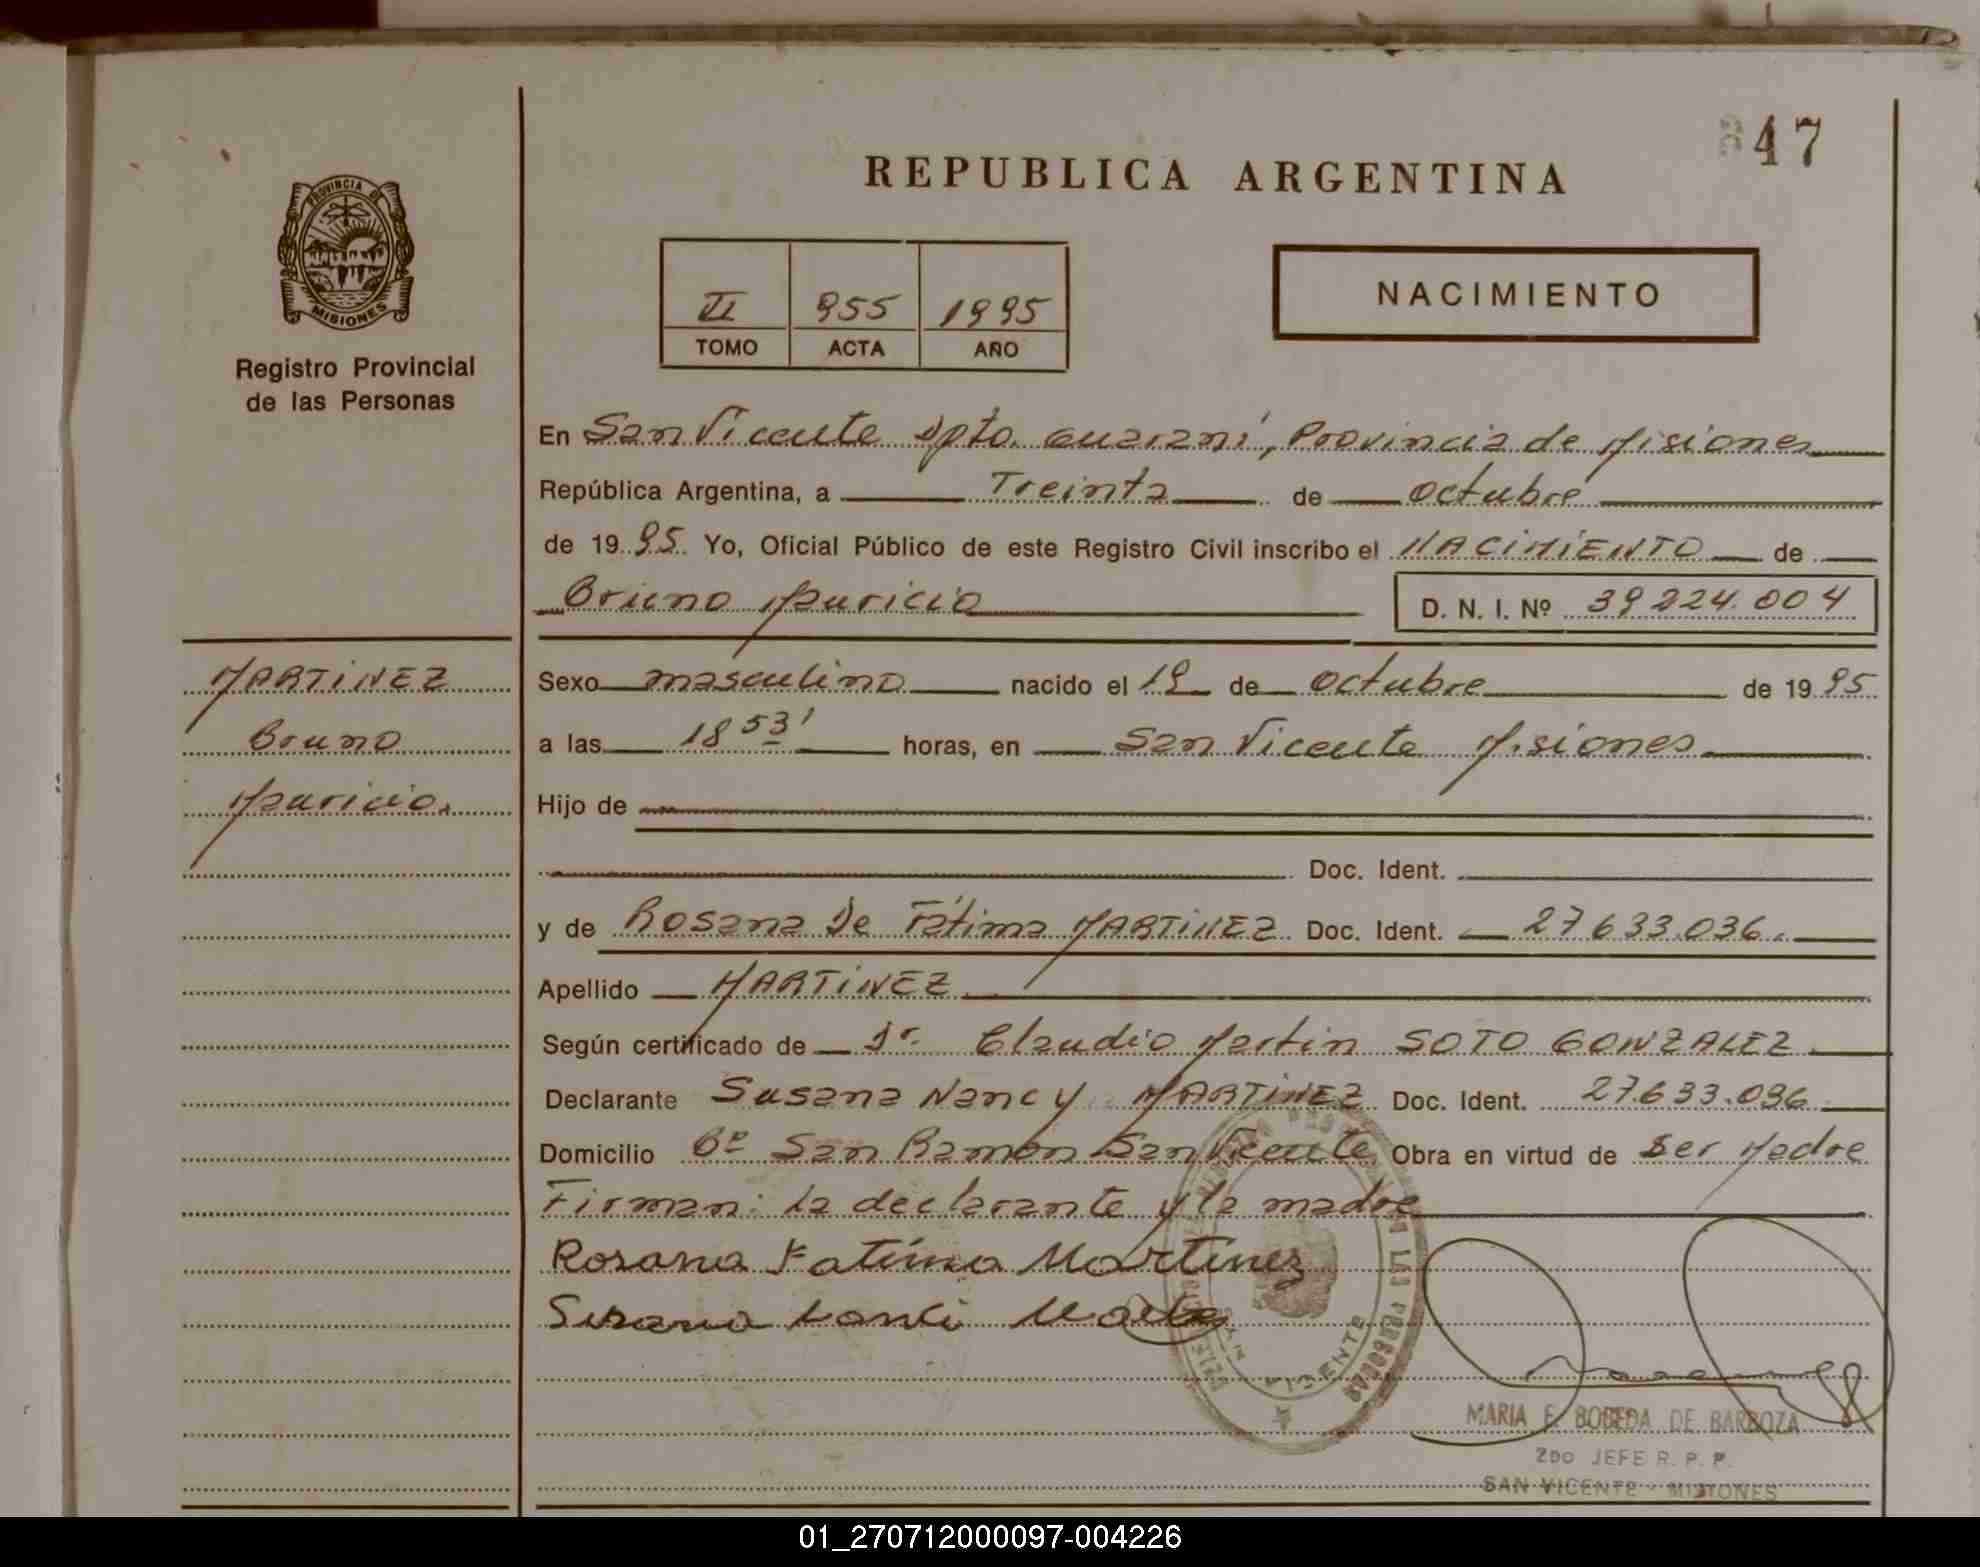 47
REPUBLICA ARGENTINA
PROVINCIA DE
MISIONES
Registro Provincial
de las Personas
VI 955 1995
TOMO ACTA AÑO
NACIMIENTO
En San Vicente Dpto. Guaraní, Provincia de Misiones
República Argentina, a Treinta de octubre
de 1995 Yo, Oficial Público de este Registro Civil inscribo el NACIMIENTO de
Bruno Mauricio
D. N. I. Nº 39224.004
MARTINEZ
Bruno
Mauricio.
Sexo masculino nacido el 19 de octubre de 1995
a las 18 53' horas, en San Vicente Misiones
Hijo de
Doc. Ident.
y de Rosana De Fátima MARTINEZ Doc. Ident. 27633.036.
Apellido MARTINEZ
Según certificado de Dr. Claudio Martin SOTO GONZALEZ
Declarante Susana Nancy MARTINEZ Doc. Ident. 27.633.096
Domicilio Bº San Ramon San Vicente Obra en virtud de ser Madre
Firman: la declarante y la madre
Rosana Fatima Martinez
Susana
VICENTE
LAS PERSONAS
MARIA E. BOBEDA DE BARBOZA
2DO JEFE R. P. P.
SAN VICENTE - MISIONES
01_270712000097-004226